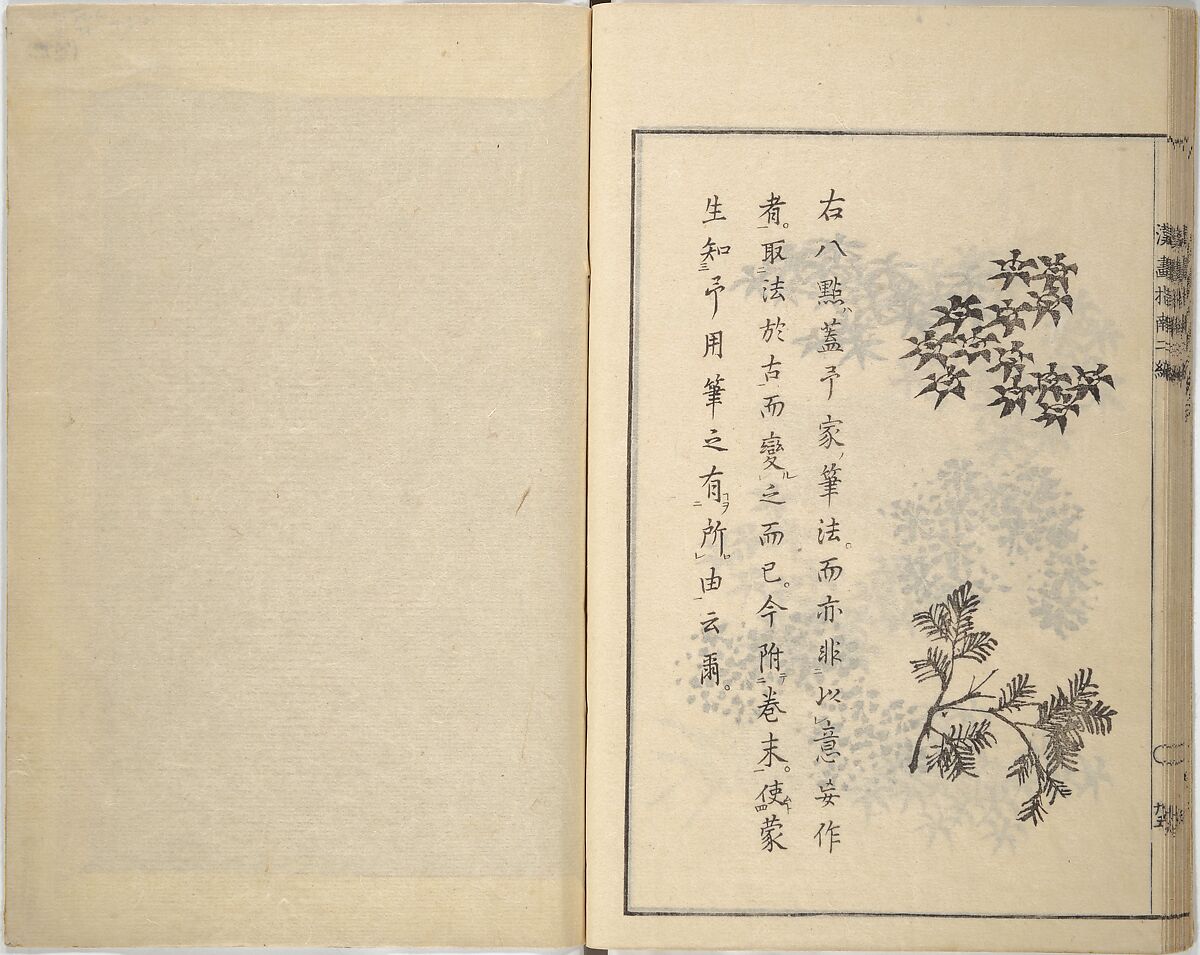 右八點蓋予家筆法。而亦非以意妄作
者。取法於古而變之而已。今附卷末。使蒙
生知予用筆之有所由云爾。
漢畫指南二編